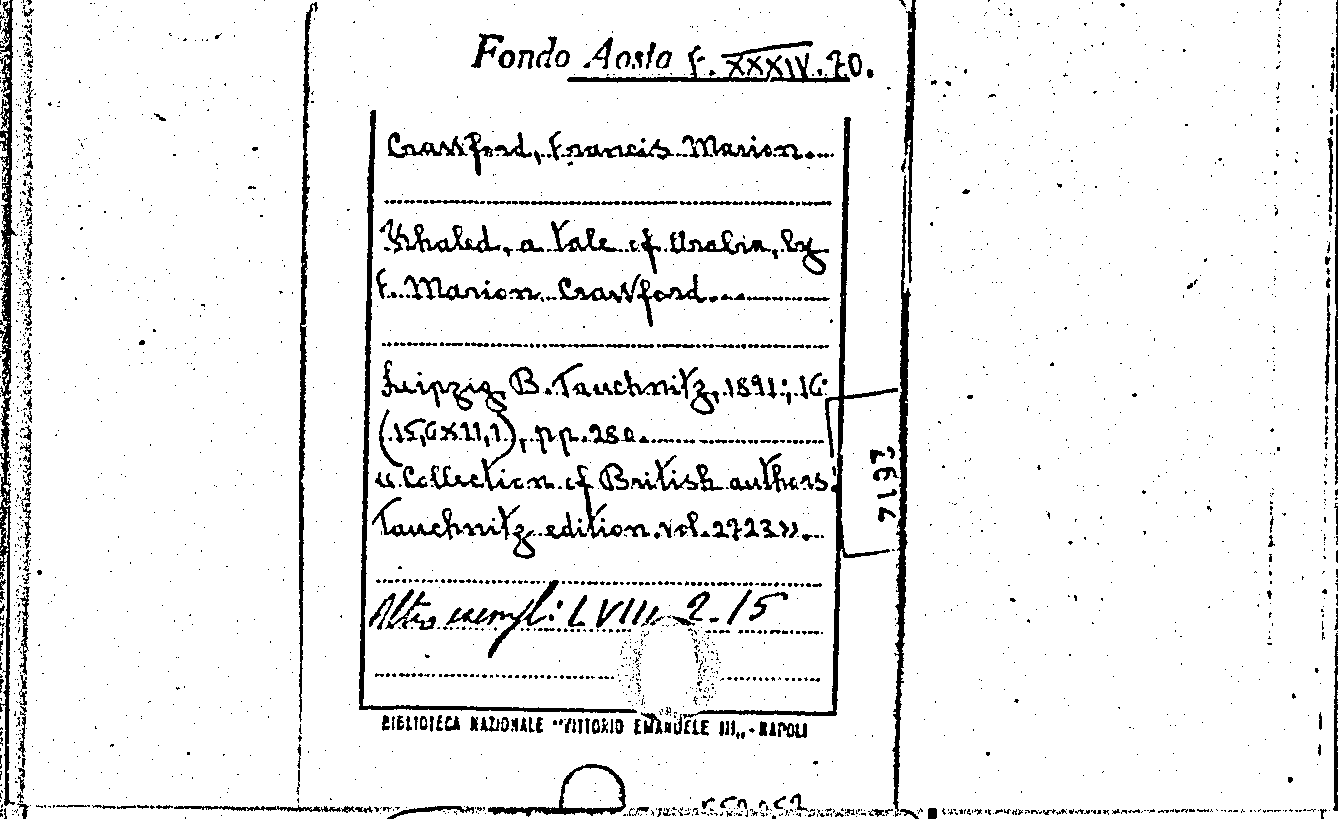 Fondo Aosta F. XXXIV. 70.
Crawford, Francis Marion.
Khaled, a tale of Arabia, by
F. Marion Crawford.
Leipzig, B. Tauchnitz, 1891; 16°
(15,6×11,1), pp. 280.
"Collection of British authors.
Tauchnitz edition. vol. 2723".
Altro esempl: L VIII 2. 15
BIBLIOTECA NAZIONALE "VITTORIO EMANUELE III„ - NAPOLI